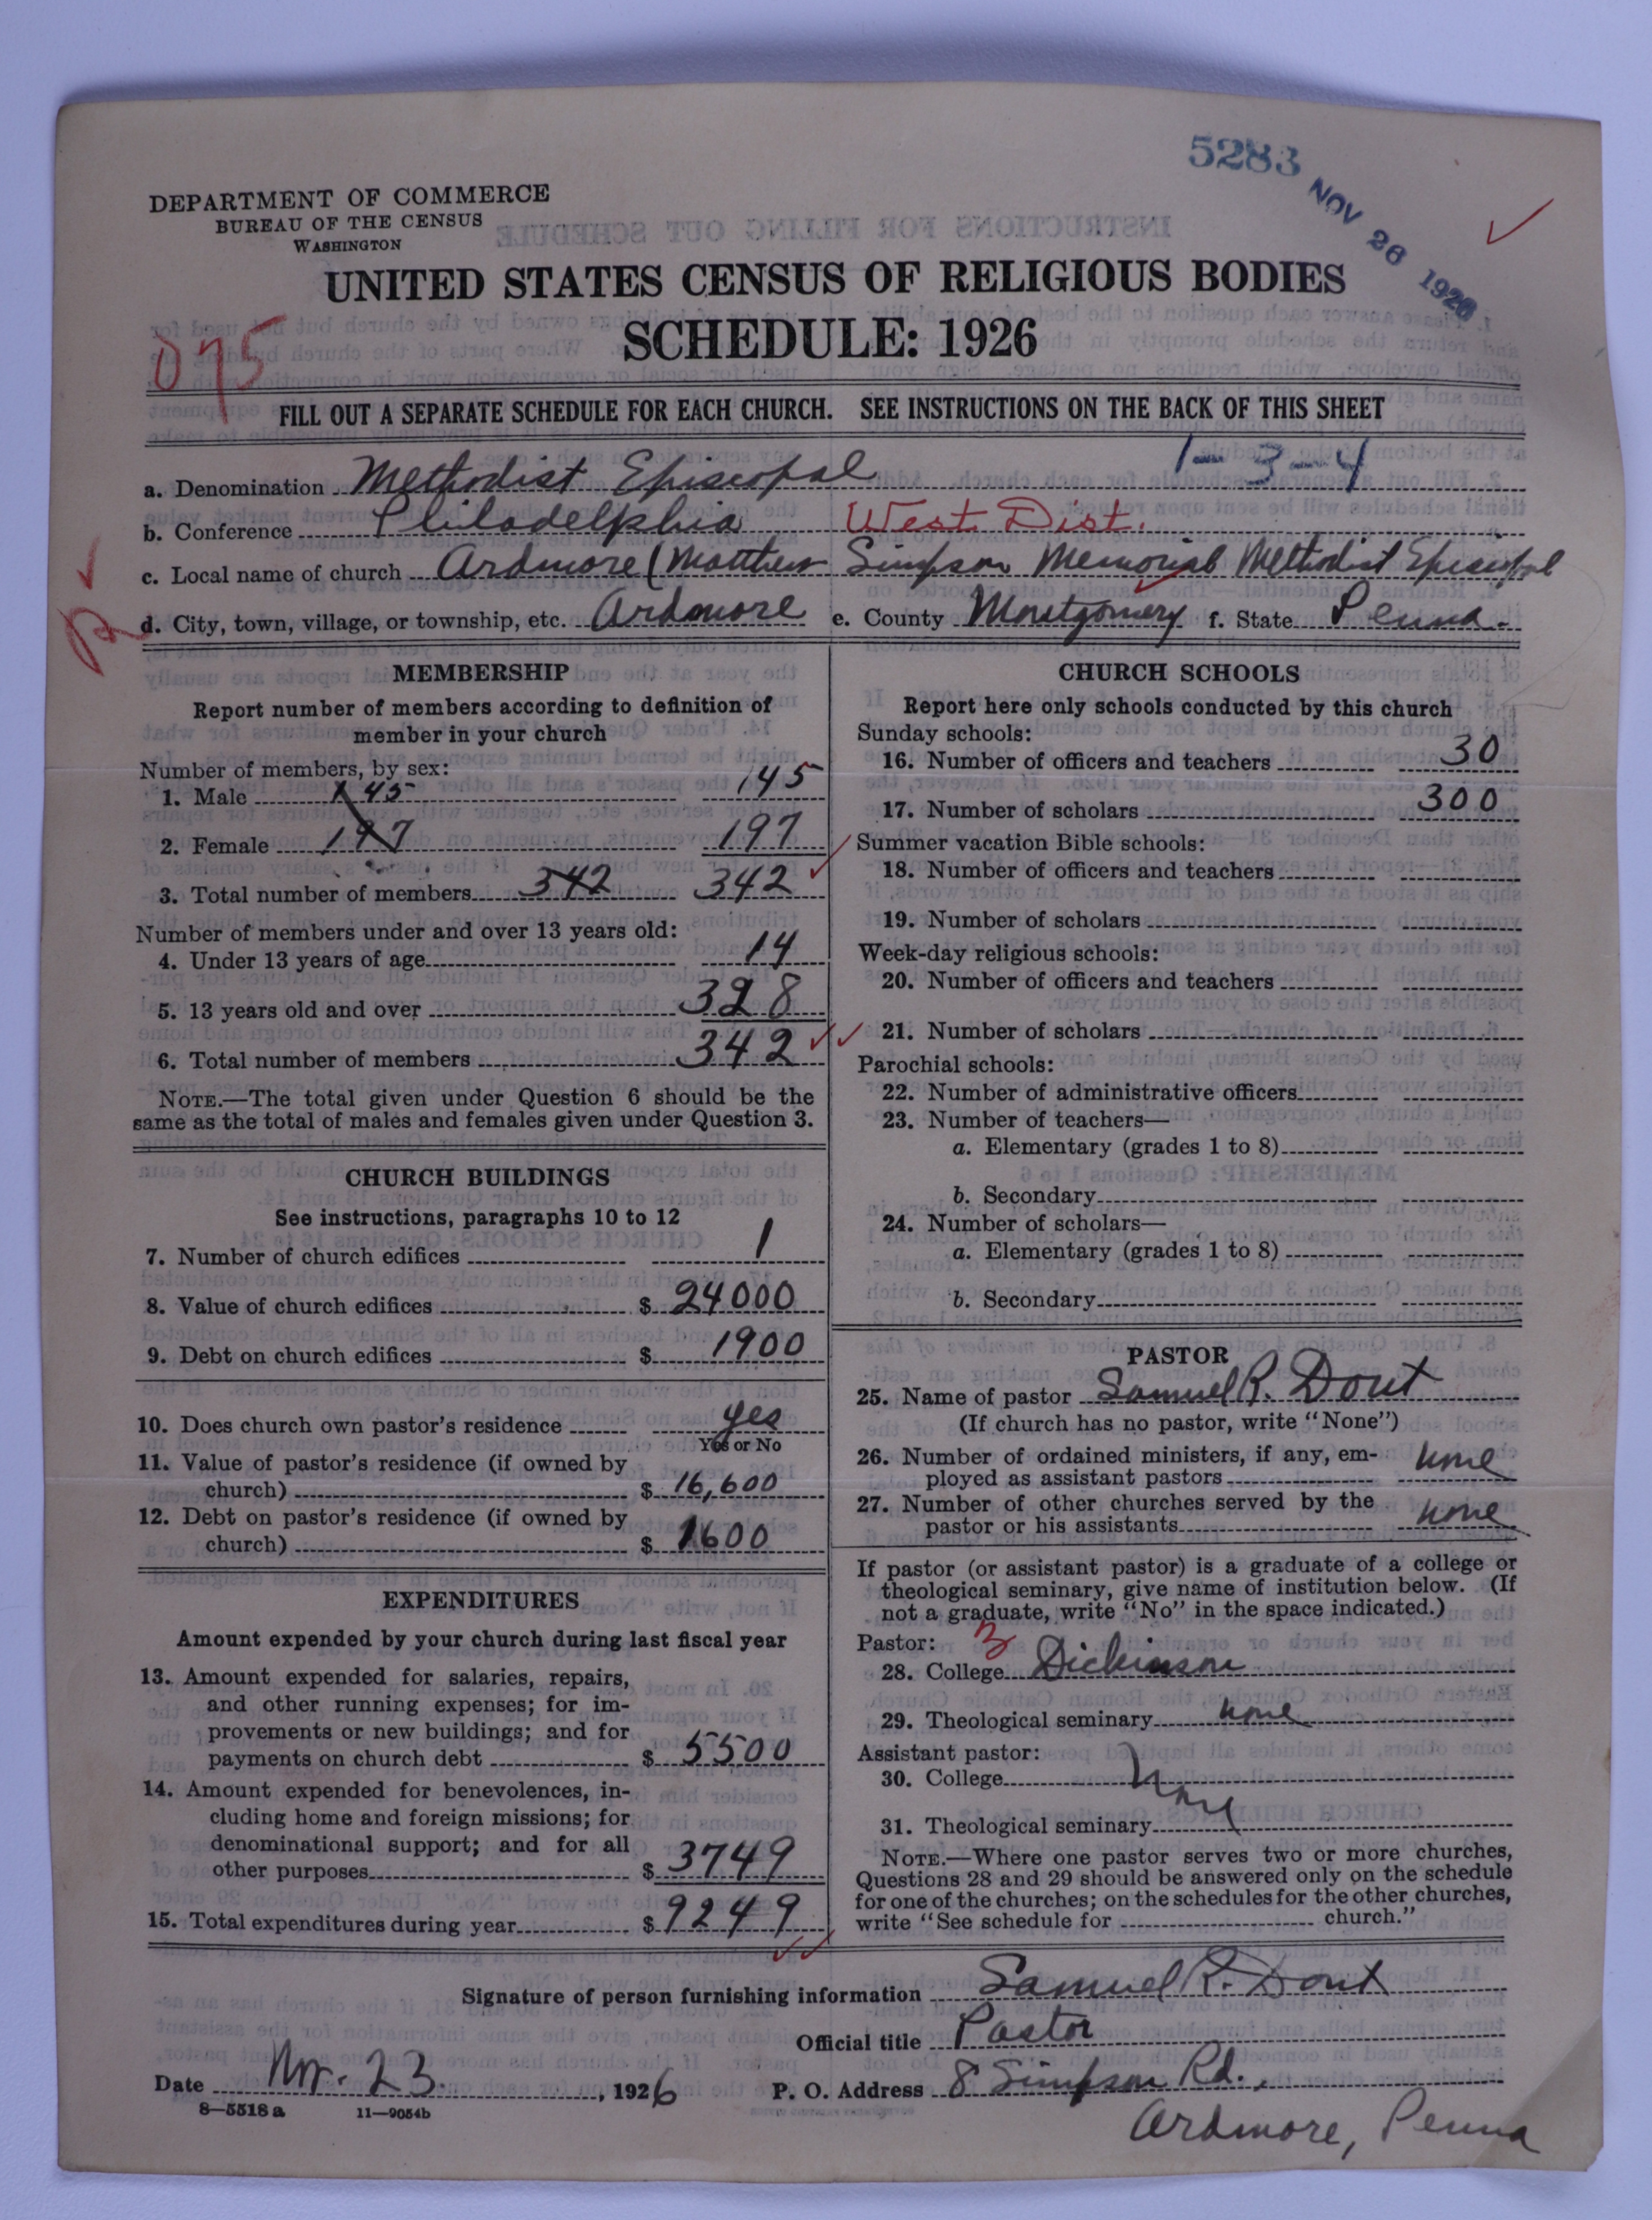 5283
NOV 26 1926
DEPARTMENT OF COMMERCE
BUREAU OF THE CENSUS
WASHINGTON
UNITED STATES CENSUS OF RELIGIOUS BODIES
SCHEDULE: 1926
075
FILL OUT A SEPARATE SCHEDULE FOR EACH CHURCH. SEE INSTRUCTIONS ON THE BACK OF THIS SHEET
1-3-4
a. Denomination Methodist Episcopal
b. Conference Philadelphia West Dist.
c. Local name of church Ardmore (Matthew Simpson Memorial Methodist Episcopal
d. City, town, village, or township, etc. Ardmore e. County Montgomery f. State Penna.
MEMBERSHIP
Report number of members according to definition of
member in your church
Number of members, by sex:
1. Male 145 145
2. Female 197 197
3. Total number of members 342 342
Number of members under and over 13 years old:
4. Under 13 years of age 14
5. 13 years old and over 328
6. Total number of members 342
NOTE.—The total given under Question 6 should be the
same as the total of males and females given under Question 3.
CHURCH BUILDINGS
See instructions, paragraphs 10 to 12
7. Number of church edifices 1
8. Value of church edifices $ 24000
9. Debt on church edifices $ 1900
10. Does church own pastor's residence yes
Yes or No
11. Value of pastor's residence (if owned by
church) $ 16,600
12. Debt on pastor's residence (if owned by
church) $ 1600
EXPENDITURES
Amount expended by your church during last fiscal year
13. Amount expended for salaries, repairs,
and other running expenses; for im-
provements or new buildings; and for
payments on church debt $ 5500
14. Amount expended for benevolences, in-
cluding home and foreign missions; for
denominational support; and for all
other purposes $ 3749
15. Total expenditures during year $ 9249
CHURCH SCHOOLS
Report here only schools conducted by this church
Sunday schools:
16. Number of officers and teachers 30
17. Number of scholars 300
Summer vacation Bible schools:
18. Number of officers and teachers
19. Number of scholars
Week-day religious schools:
20. Number of officers and teachers
21. Number of scholars
Parochial schools:
22. Number of administrative officers
23. Number of teachers—
a. Elementary (grades 1 to 8)
b. Secondary
24. Number of scholars—
a. Elementary (grades 1 to 8)
b. Secondary
PASTOR
25. Name of pastor Samuel R. Dout
(If church has no pastor, write "None")
26. Number of ordained ministers, if any, em-
ployed as assistant pastors none
27. Number of other churches served by the
pastor or his assistants none
If pastor (or assistant pastor) is a graduate of a college or
theological seminary, give name of institution below. (If
not a graduate, write "No" in the space indicated.)
Pastor:
28. College Dickinson
29. Theological seminary none
Assistant pastor:
30. College none
31. Theological seminary
NOTE.—Where one pastor serves two or more churches,
Questions 28 and 29 should be answered only on the schedule
for one of the churches; on the schedules for the other churches,
write "See schedule for church."
Signature of person furnishing information Samuel R. Dout
Official title Pastor
Date Nov. 23, 1926 P. O. Address 8 Simpson Rd.,
8—5518a 11—9054b
Ardmore, Penna